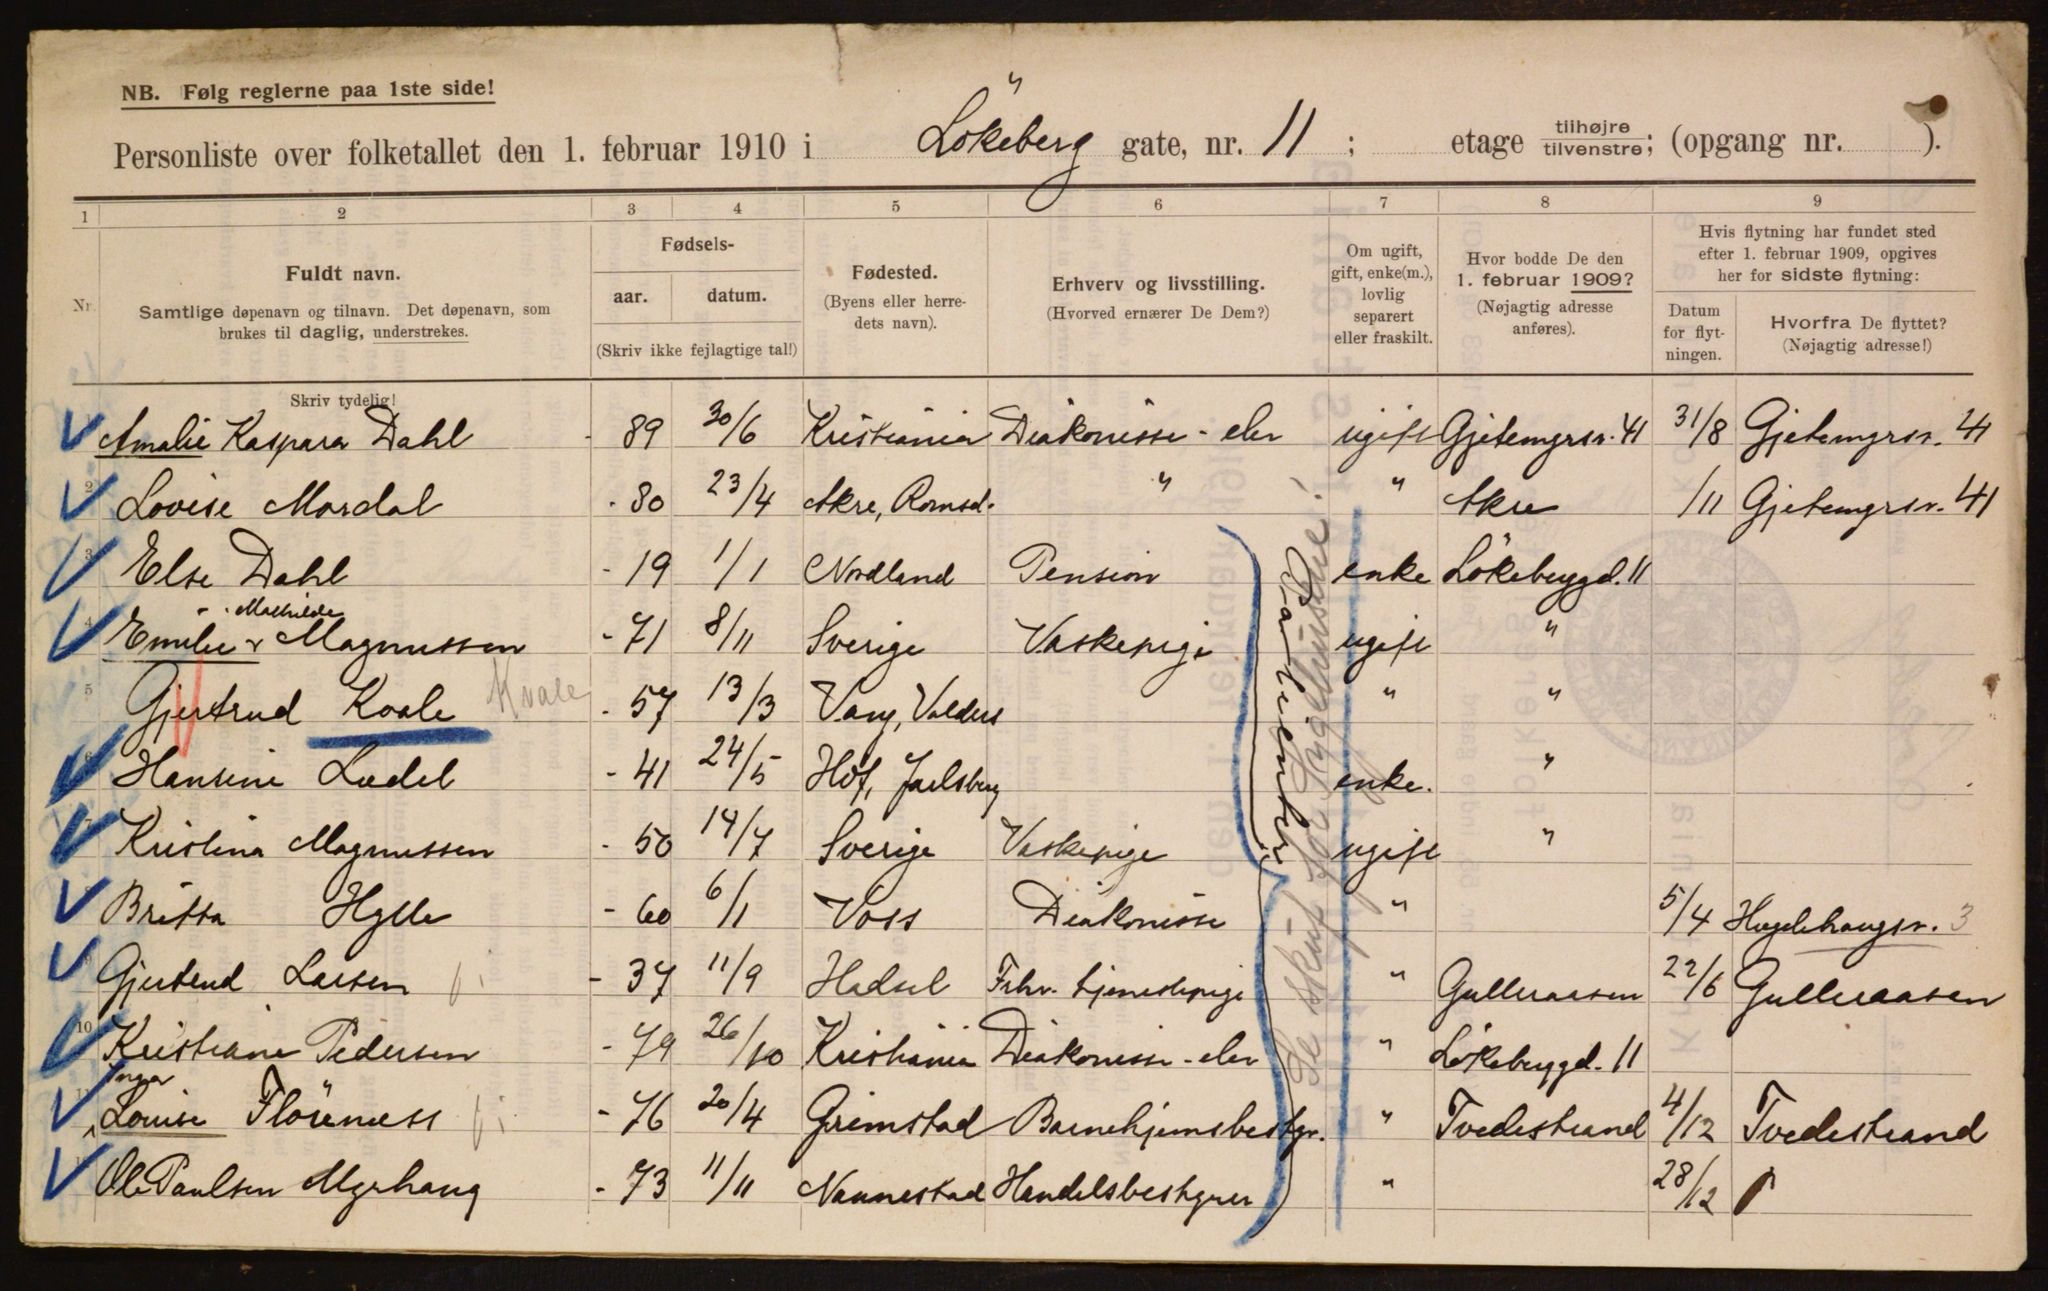 NB. Følg reglerne paa 1ste side!
Personliste over folketallet den 1. februar 1910 i Lökeberg gate, nr. 11 ; etage tilhøjre tilvenstre; (opgang nr. ).
1 2 3 4 5 6 7 8 9
Nr.
Fuldt navn.
Samtlige døpenavn og tilnavn. Det døpenavn, som
brukes til daglig, understrekes.
Skriv tydelig!
Fødsels-
aar. datum.
(Skriv ikke fejlagtige tal!)
Fødested.
(Byens eller herre-
dets navn).
Erhverv og livsstilling.
(Hvorved ernærer De Dem?)
Om ugift,
gift, enke(m.),
lovlig
separert
eller fraskilt.
Hvor bodde De den
1. februar 1909?
(Nøjagtig adresse
anføres).
Hvis flytning har fundet sted
efter 1. februar 1909, opgives
her for sidste flytning:
Datum
for flyt-
ningen.
Hvorfra De flyttet?
(Nøjagtig adresse!)
1 Amalie Kaspara Dahl - 89 30/6 Kristiania Diakonisse - elev ugift Gjetemyrsv. 41 31/8 Gjetemyrsv. 41
2 Lovise Mordal - 80 23/4 Akre, Romsd. " " Akre /11 Gjetemyrsv. 41
3 Else Dahl - 19 1/1 Nordland Pension enke Lökebergd. 11
4 Emilie Mathilde Magnussen - 71 8/11 Sverige Vaskepige ugift "
5 Gjertrud Kvale Kvale - 57 13/3 Vang, Valders " "
6 Hansine Ludel - 41 24/5 Hof, Jarlsberg enke. "
7 Kristina Magnussen - 50 14/7 Sverige Vaskepige ugift "
8 Britta Hylle - 60 6/1 Voss Diakonisse " 5/4 Hegdehaugsv. 3
9 Gjertrud Larsen - 37 11/9 Hadsel Fhv. tjenestepige " Gulleraasen 22/6 Gulleraasen
10 Kristiane Pedersen - 79 26/10 Kristiania Diakonisse - elev " Lökebergd. 11
11 Inga Louise Flörenæss - 76 20/4 Grimstad Barnehjemsbestyr. " Tvedestrand 4/12 Tvedestrand
12 Ole Paulsen Myrhaug - 73 11/11 Nannestad Handelsbestyrer " 28/12
Patienter
Se skuf for Sygehusene!